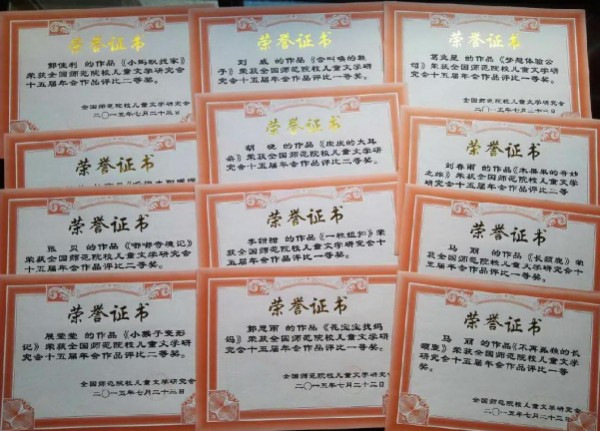 荣誉证书
郭佳利 的作品《小蚂蚁找家》
荣获全国师范院校儿童文学研究会
十五届年会作品评比二等奖。
全国师范院校儿童文学研究会
二〇一五年七月二十三日
荣誉证书
刘 威 的作品《会叫唤的鞋
子》荣获全国师范院校儿童文学研
究会十五届年会作品评比一等奖。
荣誉证书
的作品《梦想体验公
司》荣获全国师范院校儿童文学研
究会十五届年会作品评比一等奖。
全国师范院校儿童文学研究会
二〇一五年七月二十三日
荣誉证书
荣誉证书
胡 晓 的作品《皮皮的大耳
朵》荣获全国师范院校儿童文学研
究会十五届年会作品评比二等奖。
荣誉证书
刘春雨 的作品《木墨果的奇妙
之旅》荣获全国师范院校儿童文学
研究会十五届年会作品评比二等
荣誉证书
张 贝 的作品《嘟嘟奇遇记》
荣获全国师范院校儿童文学研究会
十五届年会作品评比二等奖。
荣誉证书
李甜甜 的作品《一粒红豆》荣
获全国师范院校儿童文学研究会十
五届年会作品评比二等奖。
荣誉证书
马 丽 的作品《长颈鹿》荣
获全国师范院校儿童文学研究会十
五届年会作品评比一等奖。
荣誉证书
展莹莹 的作品《小猴子变形
记》荣获全国师范院校儿童文学研
究会十五届年会作品评比二等奖。
全国师范院校儿童文学研究会
二〇一五年七月二十三日
荣誉证书
郭思雨 的作品《花宝宝找妈
妈》荣获全国师范院校儿童文学研
究会十五届年会作品评比二等奖。
全国师范院校儿童文学研究会
二〇一五年七月二十三日
荣誉证书
马 丽 的作品《不再孤独的长
颈鹿》荣获全国师范院校儿童文学
研究会十五届年会作品评比一等
奖。
全国师范院校儿童文学研究会
二〇一五年七月二十三日